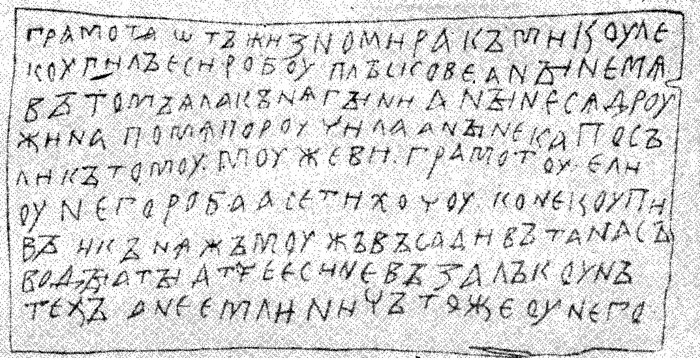 грамота ѡтъ жизномира къ микоуле
коупилъ еси робоу плъскове а нꙑне мѧ
въ томъ ѧла кънѧгꙑни а нꙑне сѧ дроу
жина по мѧ пороучила а нꙑне ка посъ
ли къ томоу моужеви грамотоу ели
оу него роба а се ти хочоу коне коупи
въ и кънѧжъ моужъ въсадивъ та на съ
водꙑ а тꙑ атче еси не възалъ коунъ
техъ а не емли ничъто же оу него